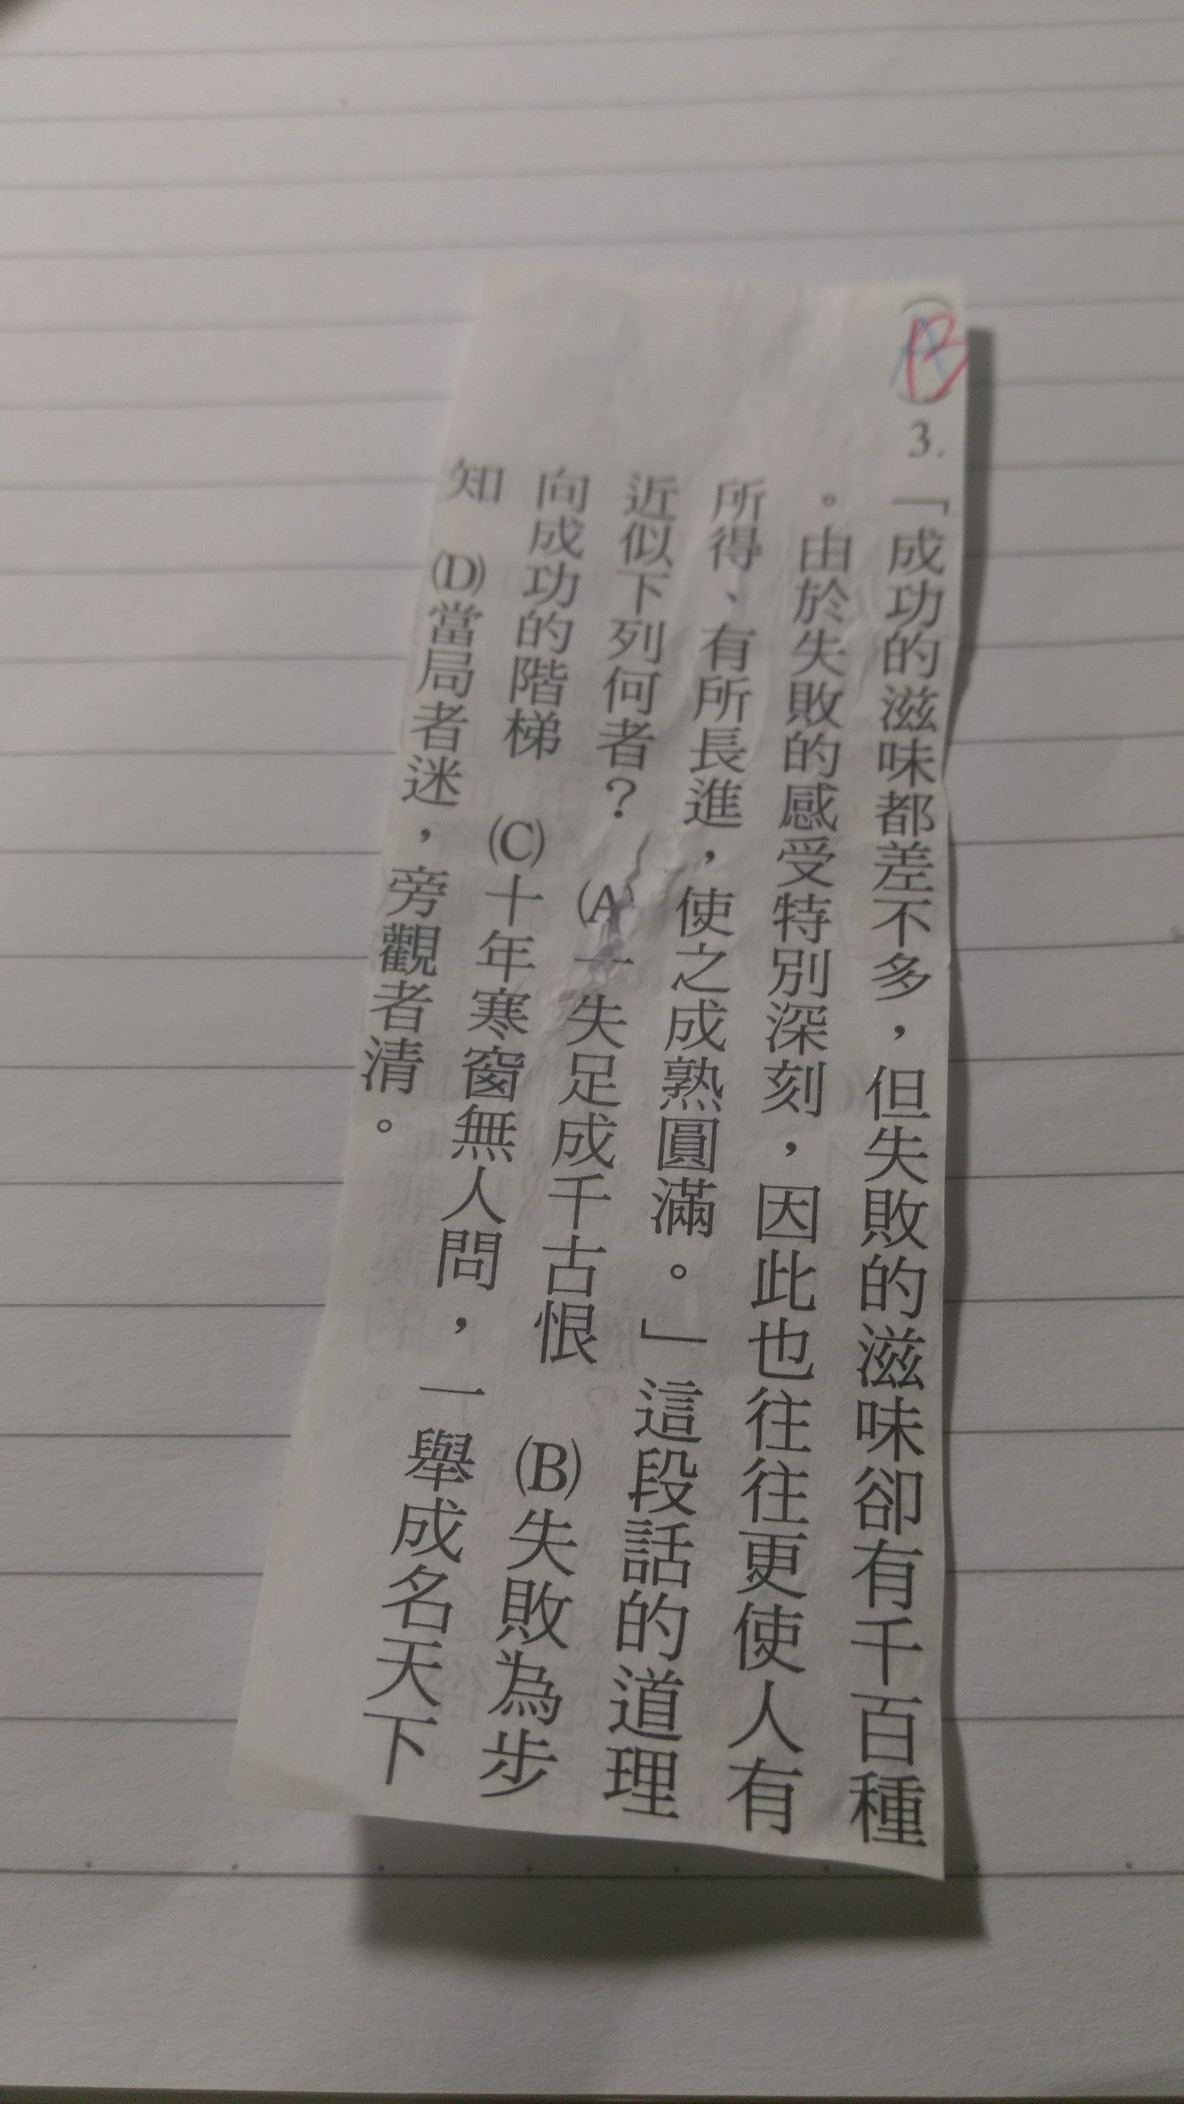 (B) 3.「成功的滋味都差不多，但失敗的滋味卻有千百種
。由於失敗的感受特別深刻，因此也往往更使人有
所得、有所長進，使之成熟圓滿。」這段話的道理
近似下列何者？ (A)一失足成千古恨 (B)失敗為步
向成功的階梯 (C)十年寒窗無人問，一舉成名天下
知 (D)當局者迷，旁觀者清。